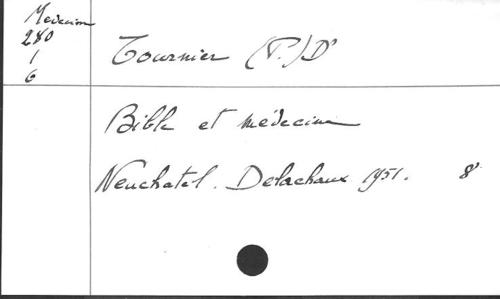 Medecine
280
1
6
Tournier (P.) Dr
Bible et médecine
Neuchatel. Delachaux 1951. 8°